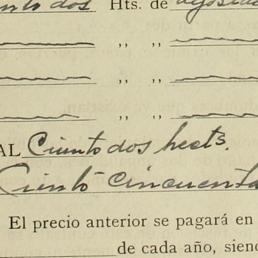 Hts. de
,, ,,
,, ,,
,, ,,
AL Ciento dos hects.
Ciento cincuenta
El precio anterior se pagará en
de cada año, sien